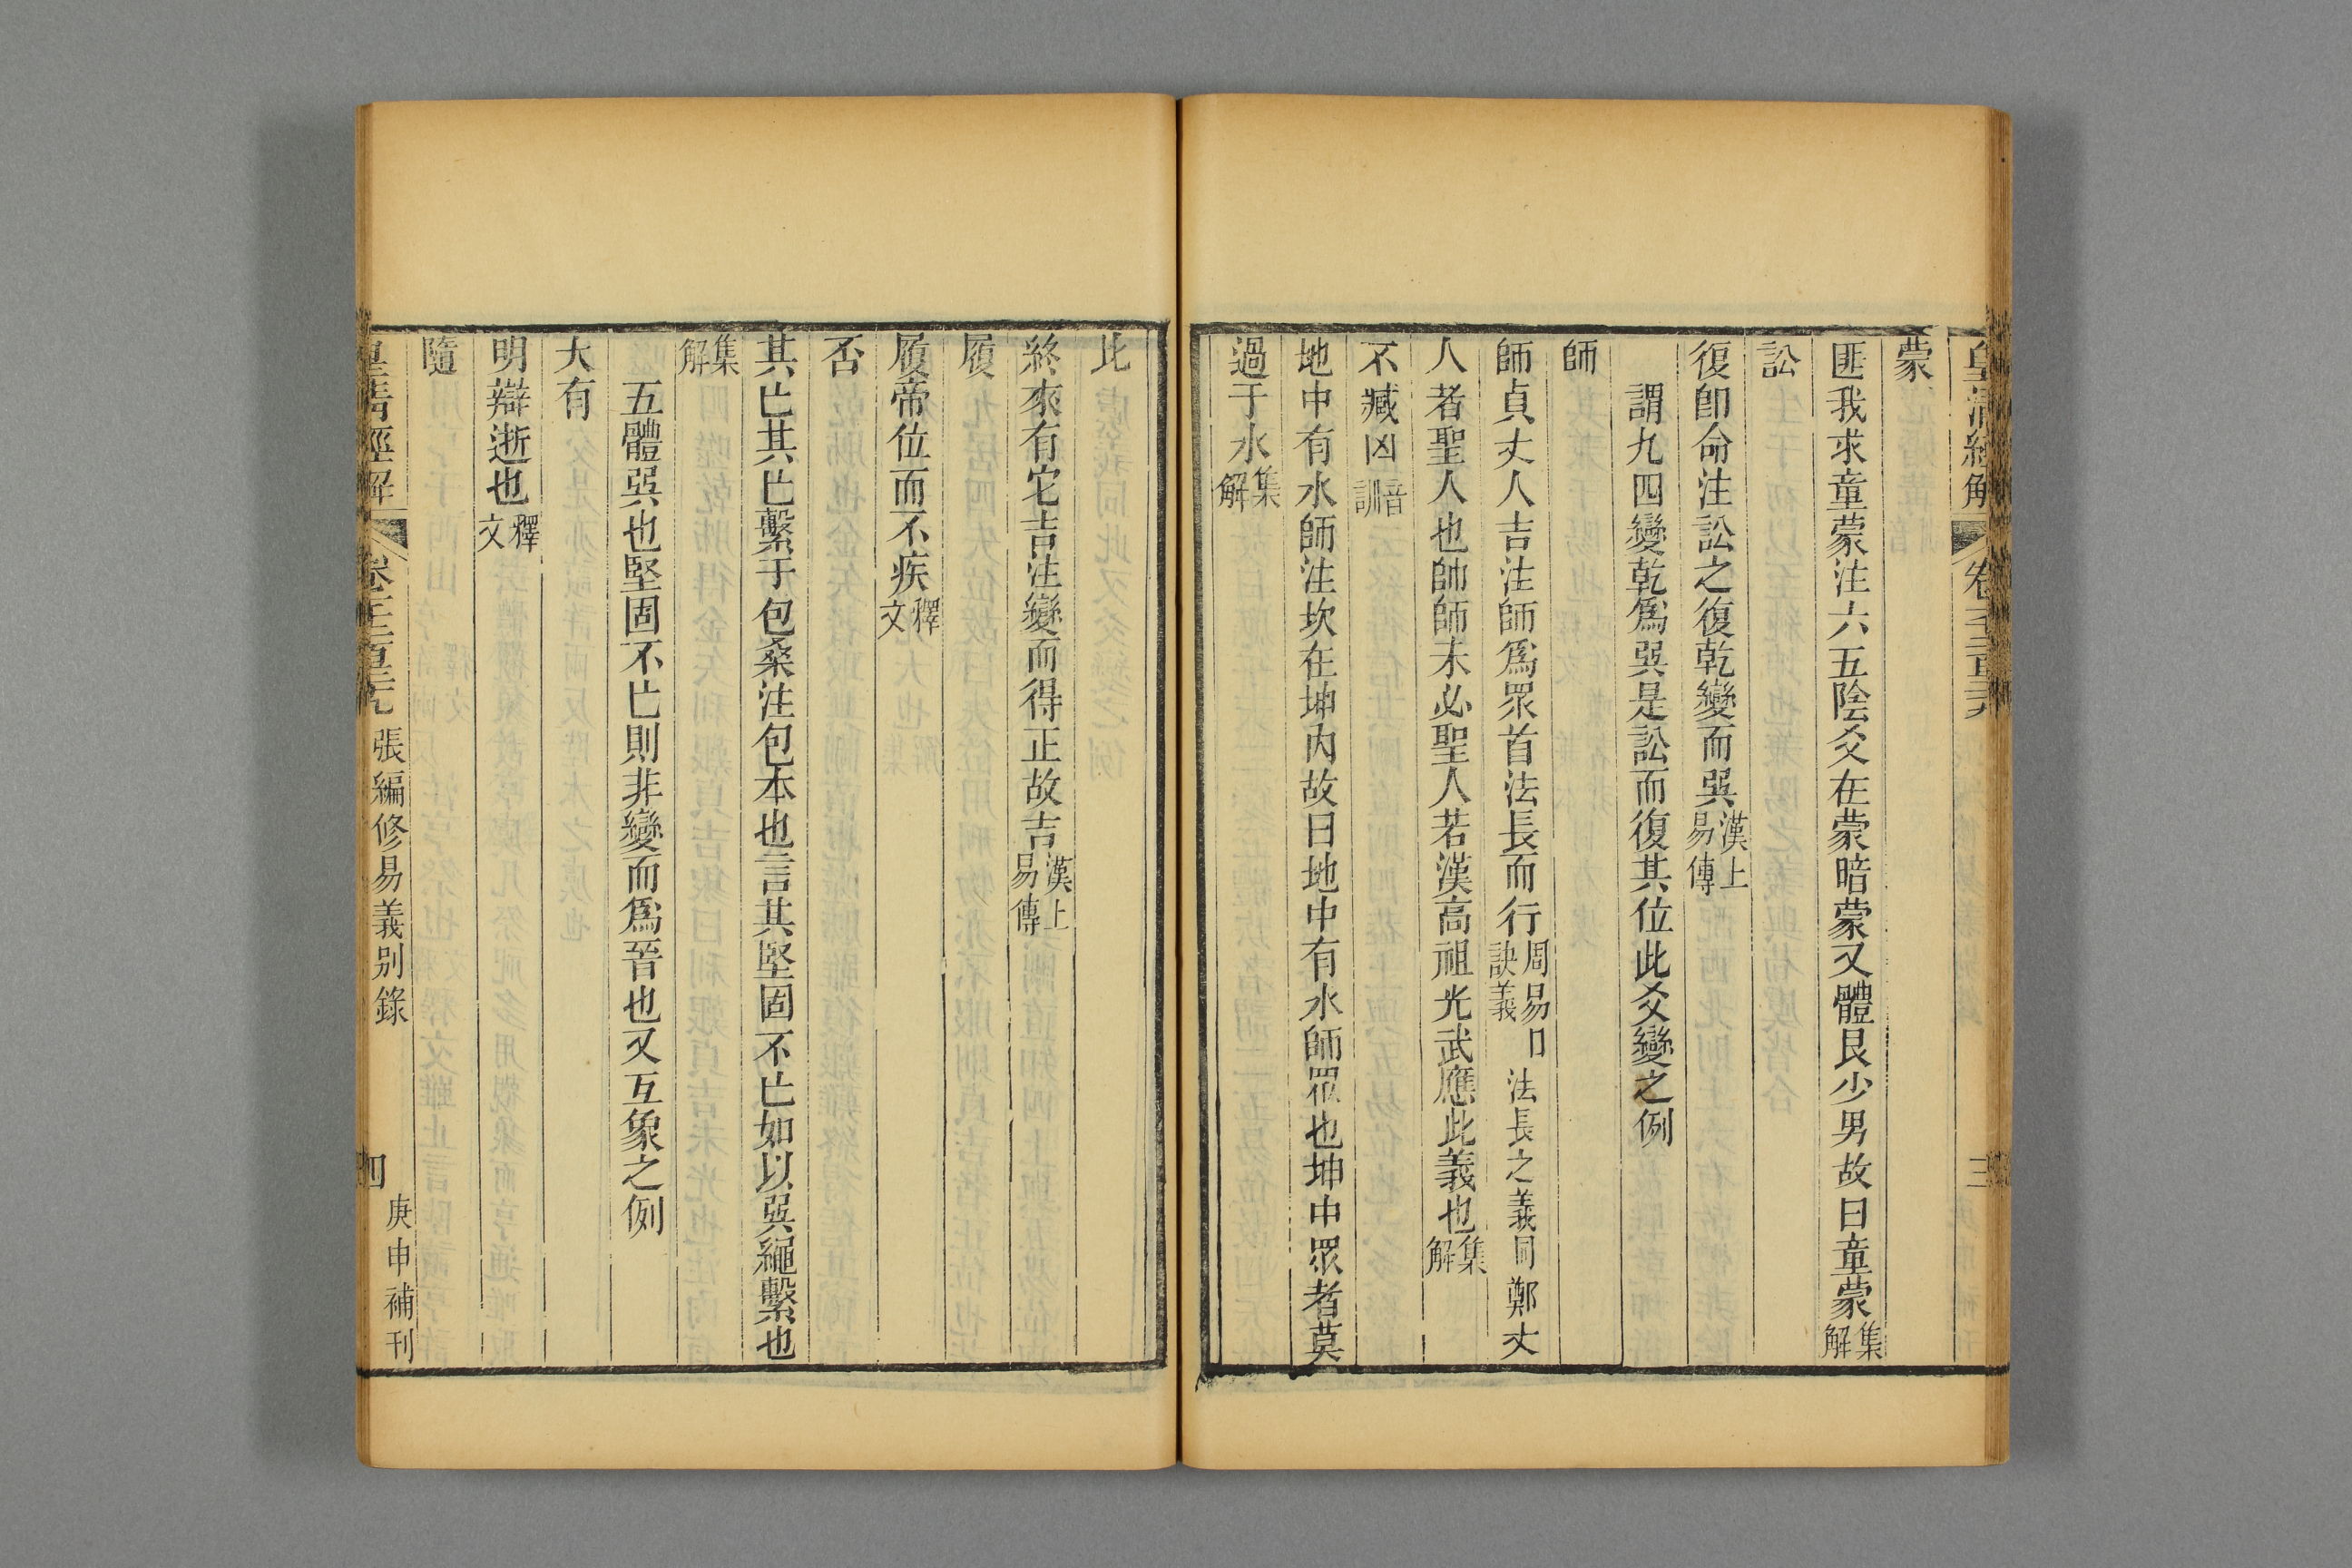 皇清經解
三
蒙
匪我求童蒙注六五陰爻在蒙暗蒙又體艮少男故曰童蒙集解
訟
復卽命注訟之復乾變而巽漢上易傳
謂九四變乾爲巽是訟而復其位此爻變之例
師
師貞丈人吉注師爲眾首法長而行周易口訣義法長之義同鄭丈
人者聖人也帥師未必聖人若漢高祖光武應此義也集解
不臧凶音訓
地中有水師注坎在坤內故曰地中有水師眾也坤中眾者莫
過于水集解
比
終來有它吉注變而得正故吉漢上易傳
履
履帝位而不疾釋文
否
其亡其亡繫于包桑注包本也言其堅固不亡如以巽繩繫也
集解
五體巽也堅固不亡則非變而爲晉也又互象之例
大有
明辯逝也釋文
隨
皇清經解
張編修易義別錄
四
庚申補刊